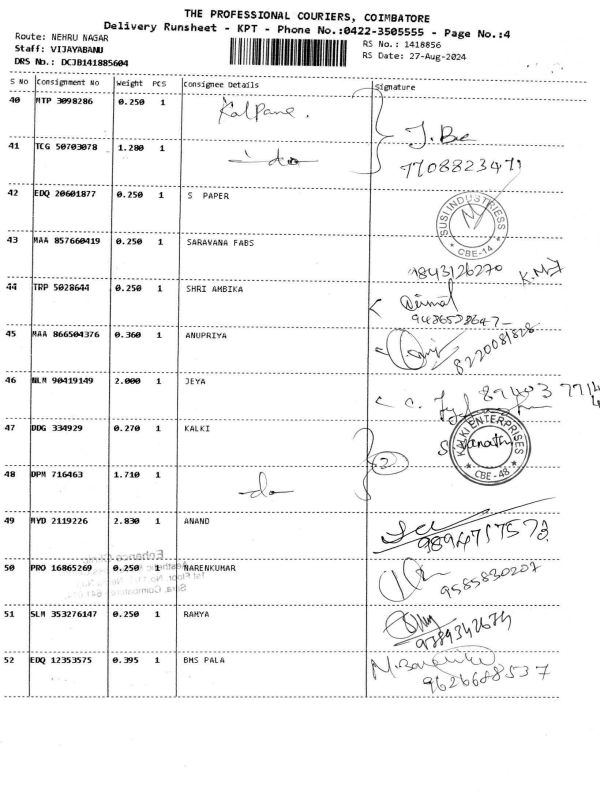 THE PROFESSIONAL COURIERS, COIMBATORE
Delivery Runsheet - KPT - Phone No.:0422-3505555 - Page No.:4
Route: NEHRU NAGAR
Staff: VIJAYABANU
DRS No.: DCJB141885604
RS No.: 1418856
RS Date: 27-Aug-2024
S No Consignment No Weight PCS Consignee Details Signature
40 MTP 3098286 0.250 1 Kalpana.
41 TCG 50703078 1.280 1 -do- 7708823471
42 EDQ 20601877 0.250 1 S PAPER SUSI INDUSTRIESS * CBE-14 *
43 MAA 857660419 0.250 1 SARAVANA FABS 9843126270
44 TRP 5028644 0.250 1 SHRI AMBIKA
45 MAA 866504376 0.360 1 ANUPRIYA 8220081828
46 NLM 90419149 2.000 1 JEYA
47 DDG 334929 0.270 1 KALKI 2 KALKI ENTERPRISES * CBE-48 *
48 DPM 716463 1.710 1 -do-
49 MYD 2119226 2.830 1 ANAND
50 PRO 16865269 0.250 1 NARENKUMAR 9585830207
51 SLM 353276147 0.250 1 RAMYA 9789342674
52 EDQ 12353575 0.395 1 BHS PALA 9626688537